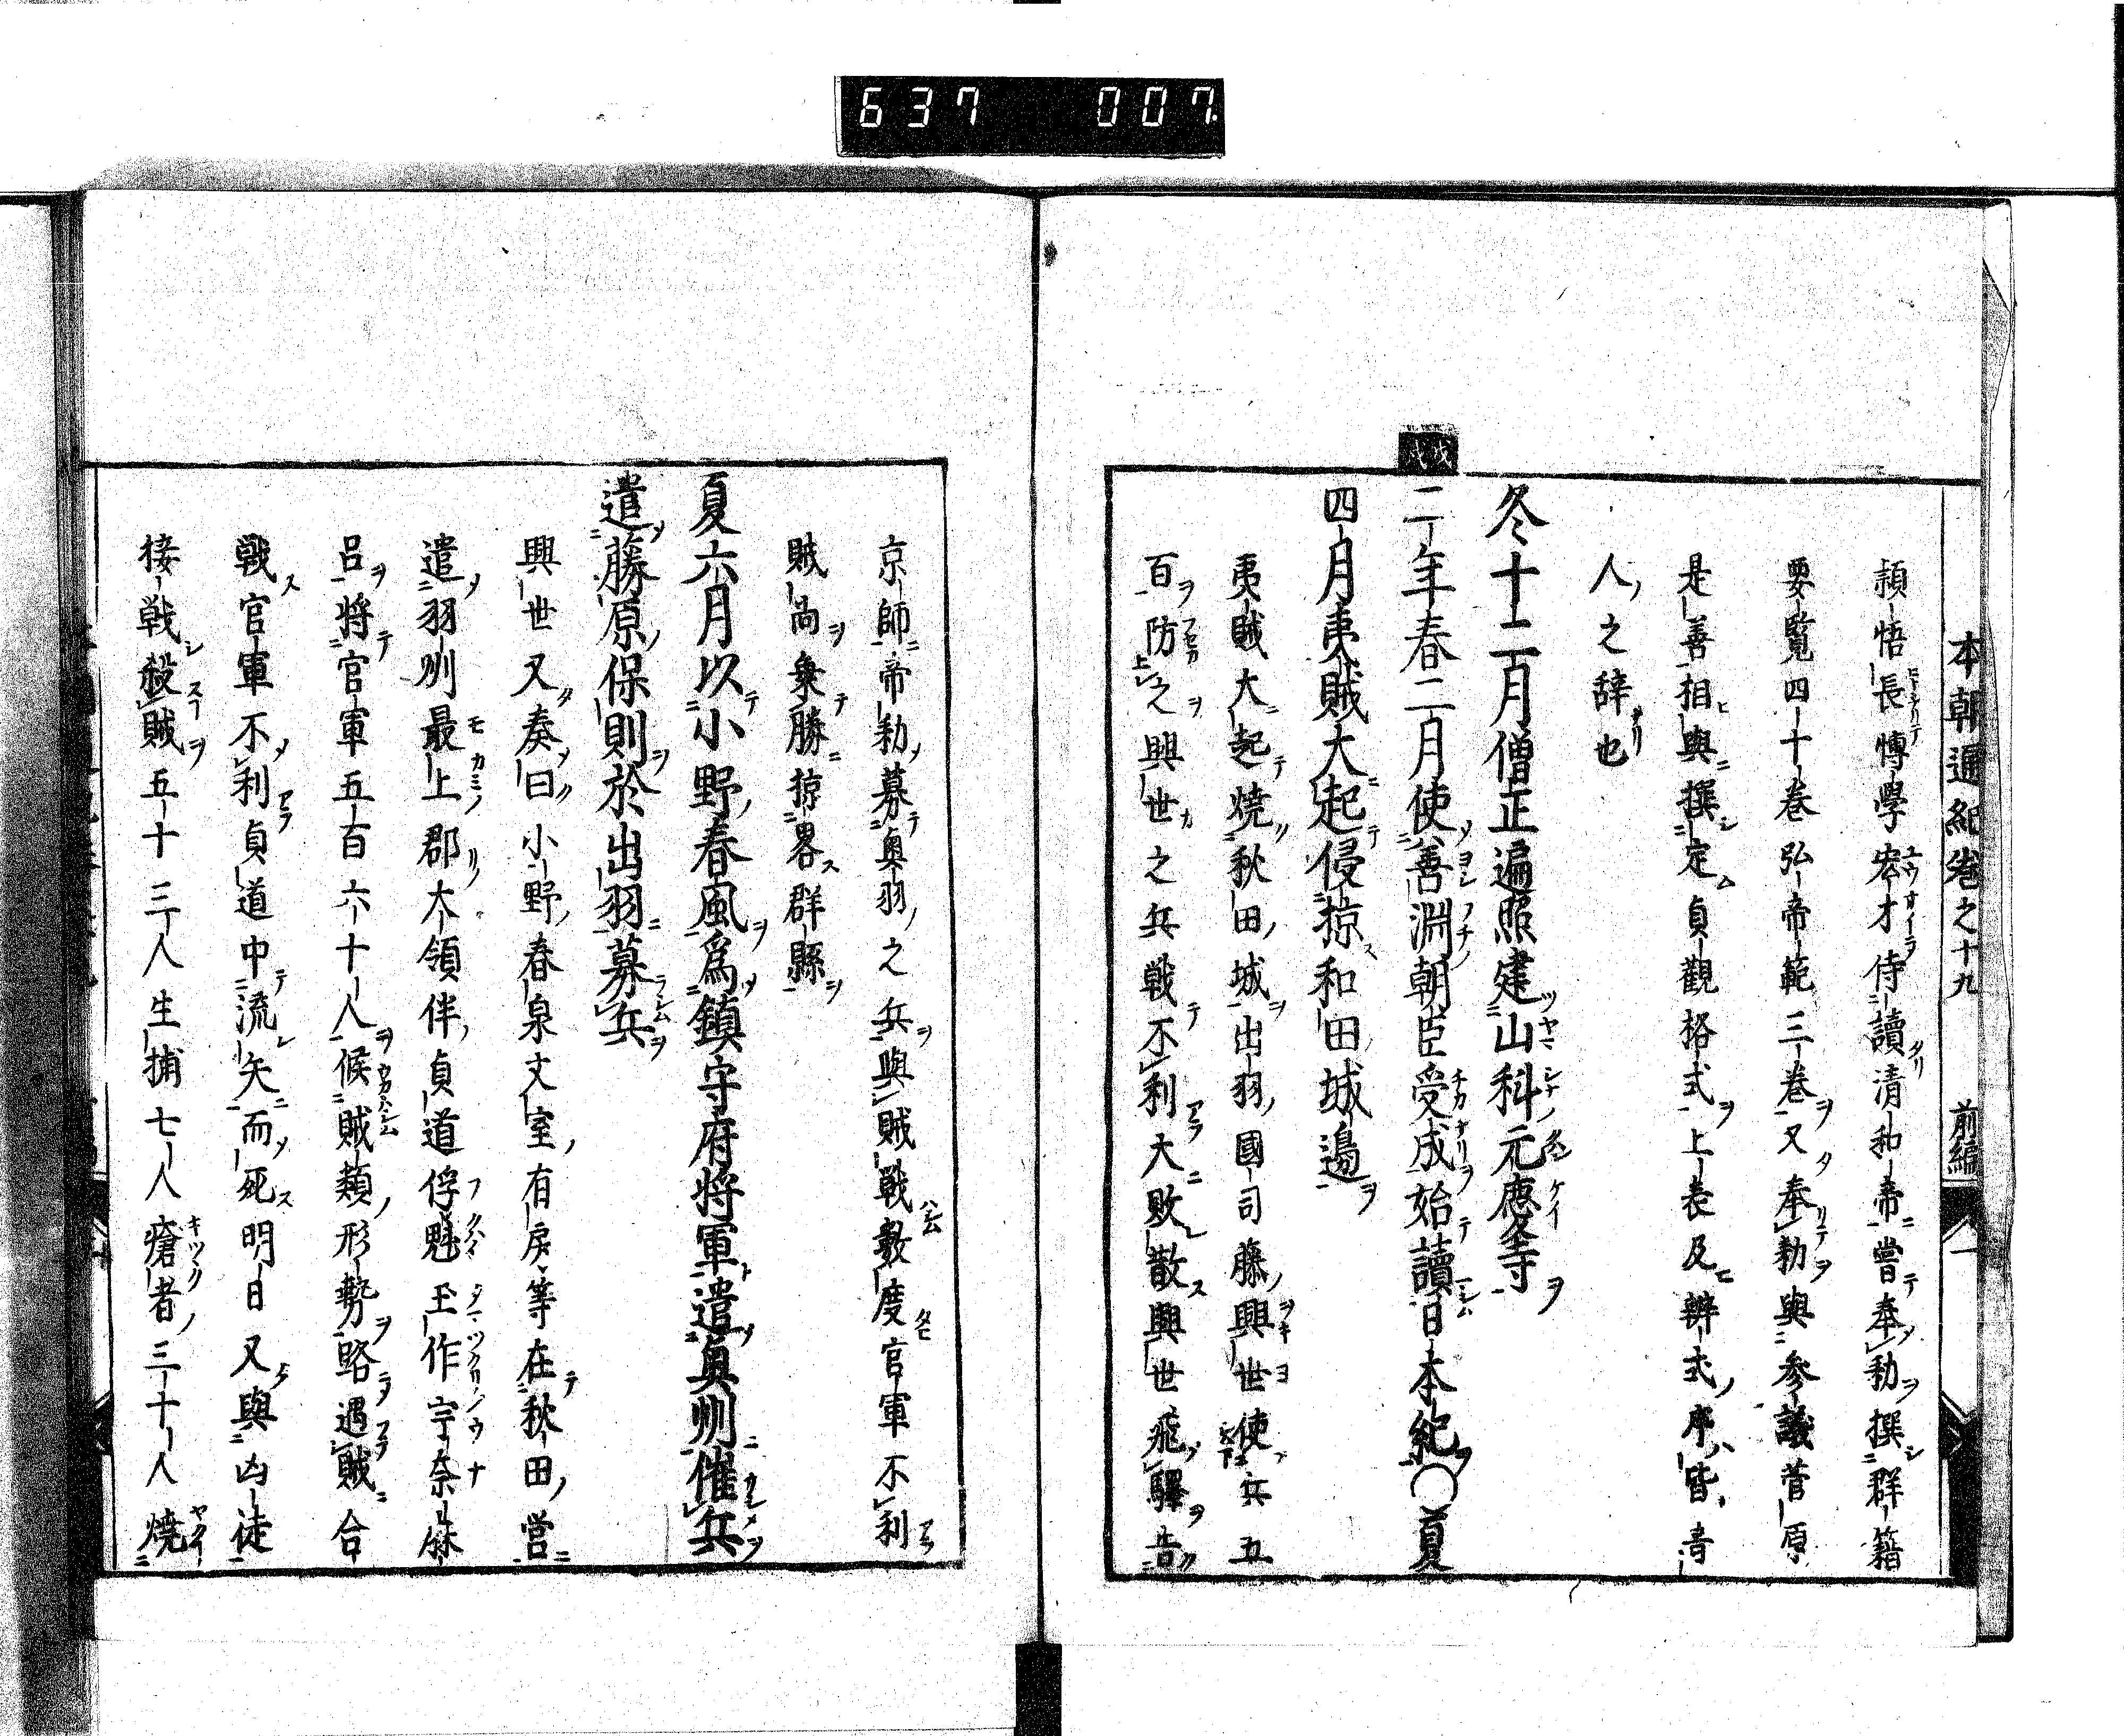 637 007
本朝通紀卷之十九 前編 一
頴悟長博學宏才侍讀清和帝嘗奉勅撰群籍
要覧四十卷弘帝範三卷又奉勅與參議菅原
是善相與撰定貞觀格式上表及辨式序皆音
人之辞也
冬十二月僧正遍照建山科元慶寺
二年春二月使善淵朝臣受成始讀日本紀○夏
四月夷賊大起侵掠和田城邉
夷賊大起燒秋田城出羽國司藤興世使兵五
百防之興世之兵戦不利大敗散興世飛驛告
京師帝勅募奥羽之兵與賊戦數度官軍不利
賊尚衆勝掠畧群縣
夏六月以小野春風爲鎮守府将軍遣奥州催兵
遣藤原保則於出羽募兵
興世又奏曰小野春泉文室有房等在秋田営
遣羽州最上郡大領伴貞道俘魁玉作宇奈麻
呂将官軍五百六十人候賊類形勢路遇賊合
戦官軍不利貞道中流矢而死明日又與凶徒
接戦殺賊五十三人生捕七人瘡者三十人燒